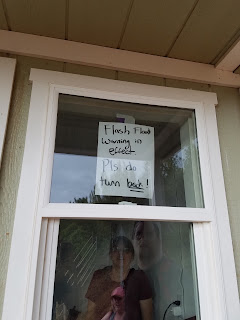 Flash Flood
Warning in
effect.
Pls do
turn back!